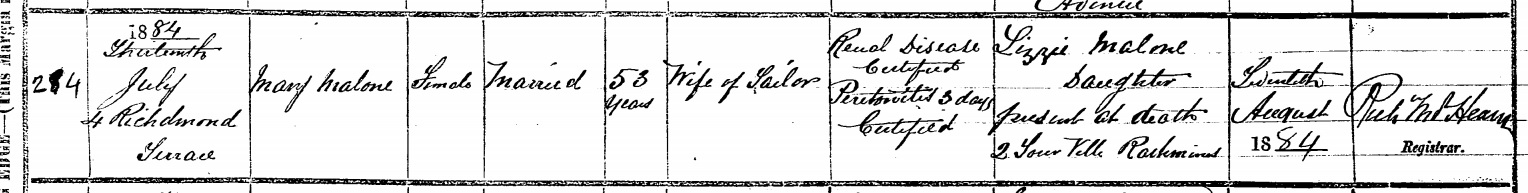 Avenue
284
1884
Thirteenth
July
4 Richdmond
Terrace
Mary Malone
Female
Married
53
years
Wife of Sailor
Renal Disease
Certified
Peritonitis 3 days
Certified
Lizzie Malone
Daughter
present at death
2 Ville Rathmines
Twentieth
August
1884
Registrar.